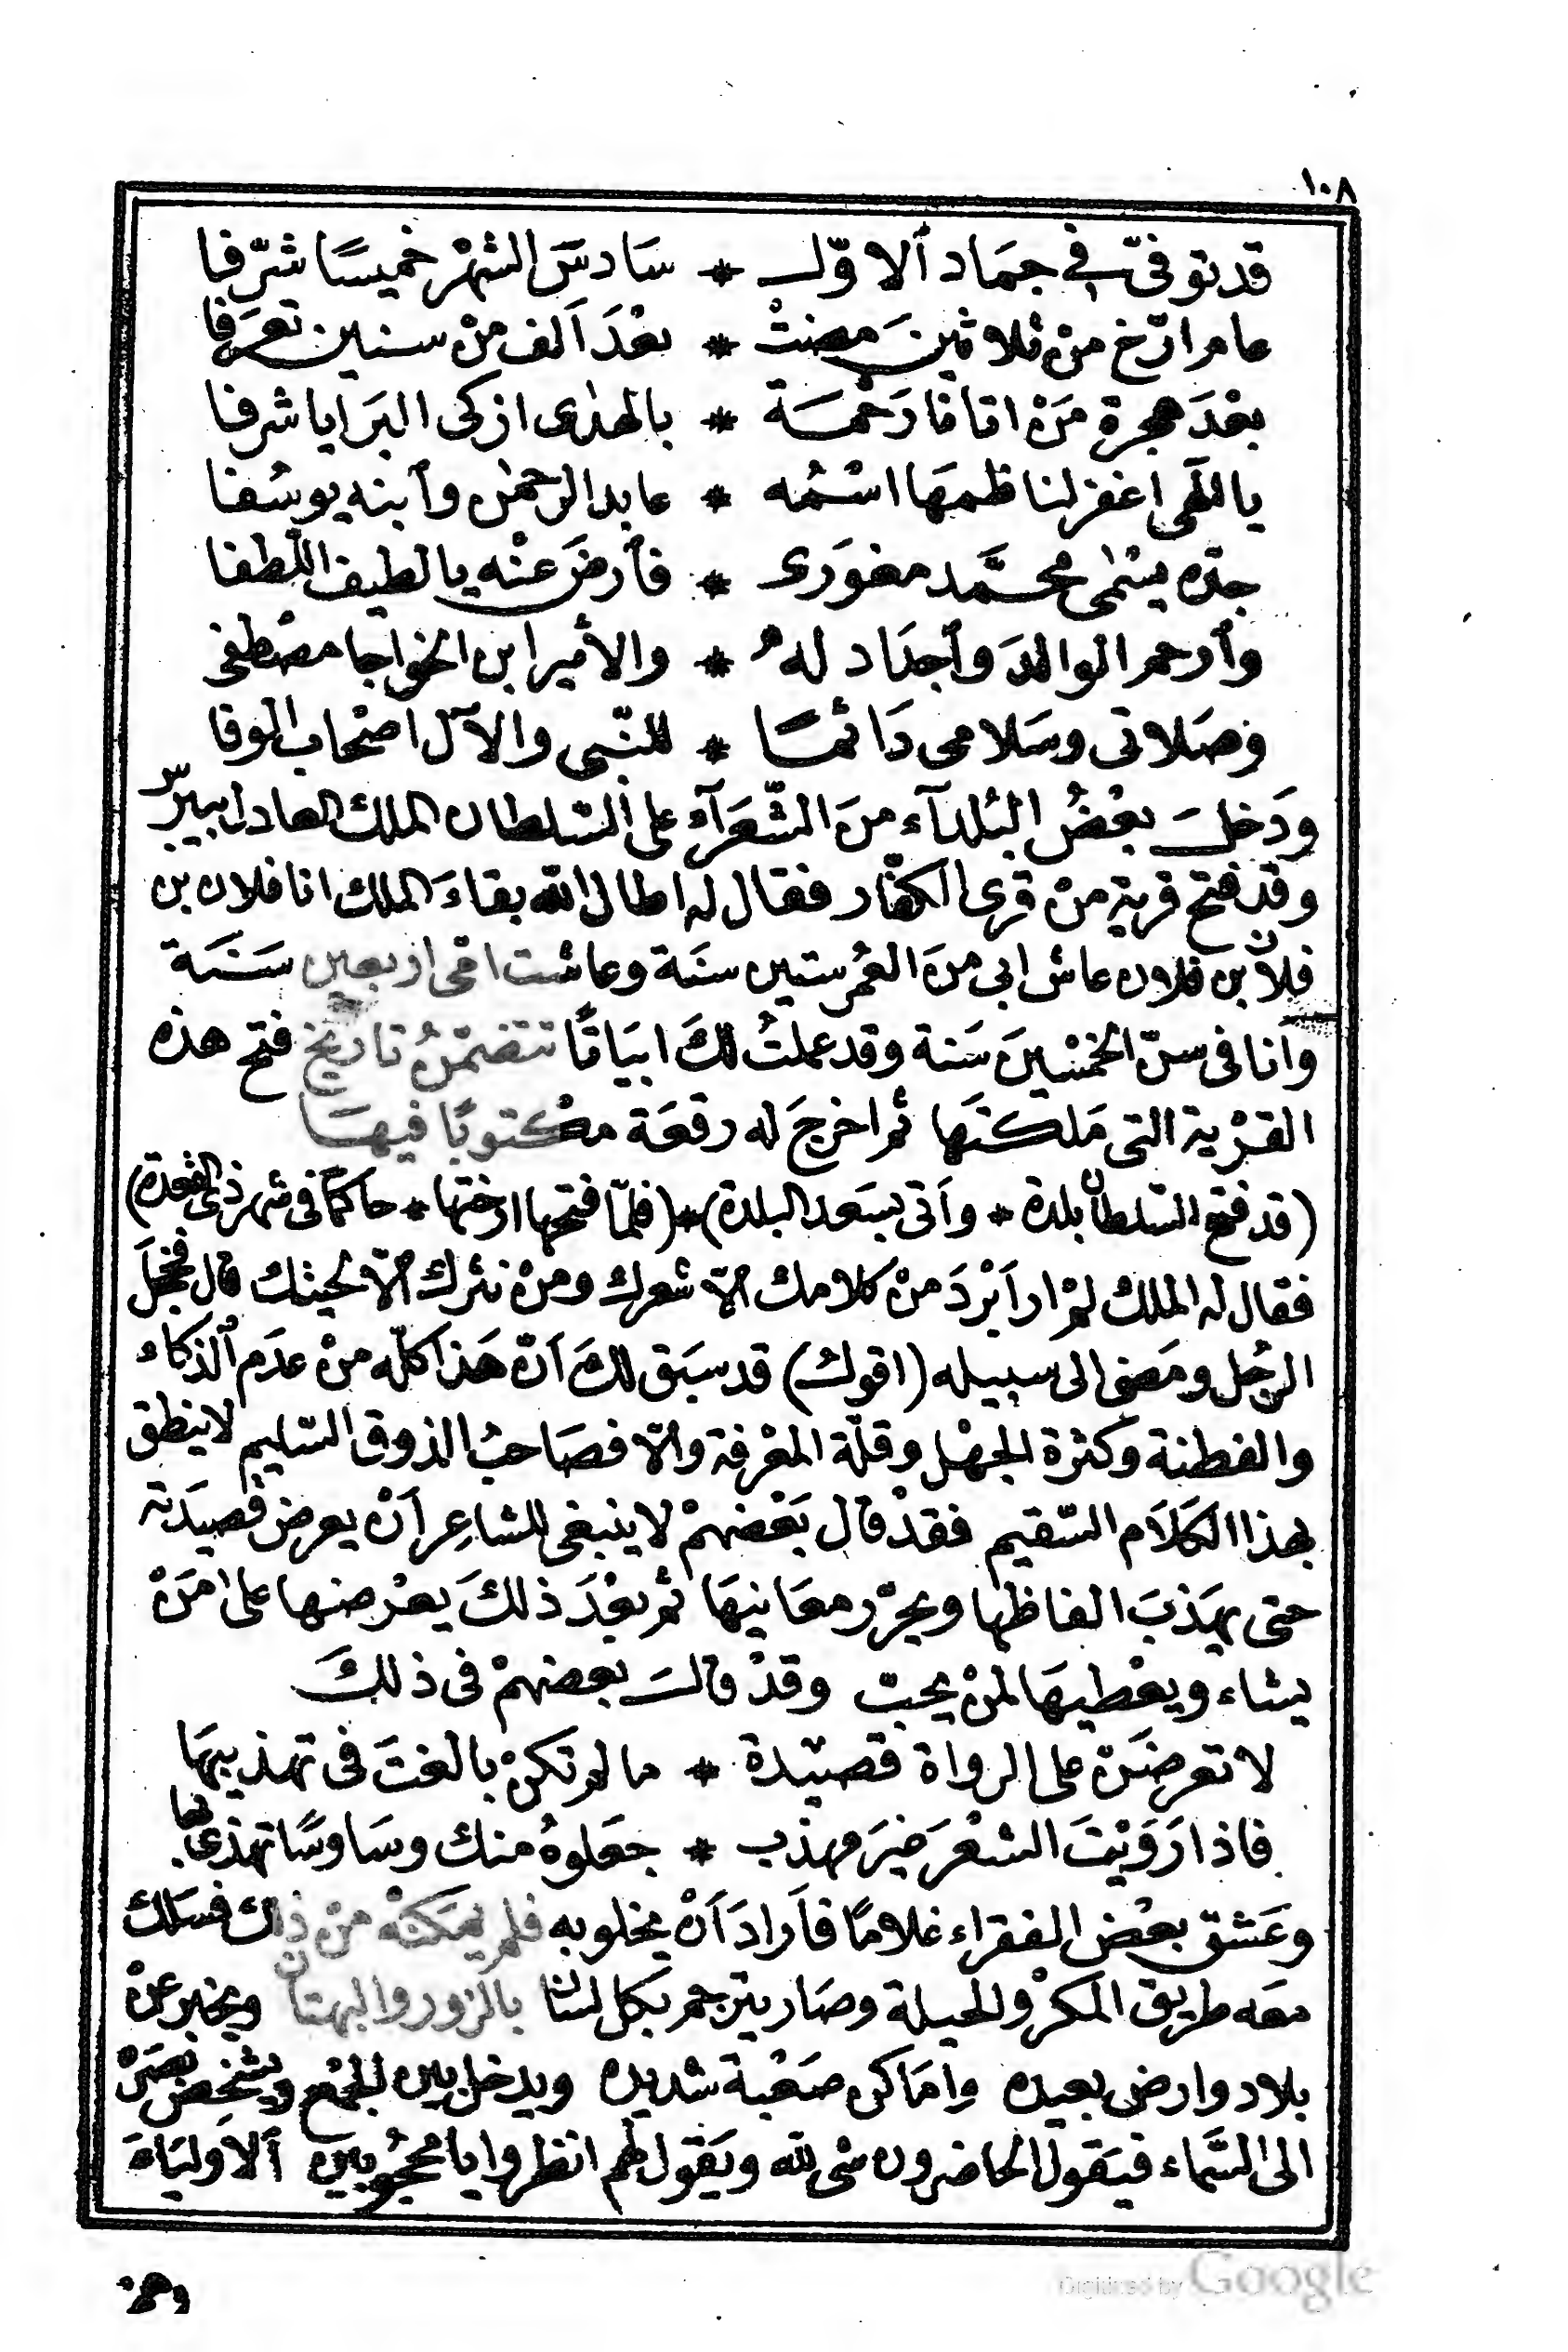 ١٠٨
قد توفّى فى جمَاد ٱلاوّل * سَادسَ الشهْر خميسًا شرّفا
عام ارّخ منْ ثلاثين مضتْ * بعْدَ اَلف منْ سنين تعرَفا
بعْدَ هجرة مَنْ اتانا رَحْمَة * بالهدٰى ازكى البرَايا شرفا
يا الٰهى اغفر لناظمهَا اسْمُه * عابد الرحمٰن وٱبنه يوسُفا
جدّه يسْمٰى محمَّد مغوَرى * فٱرضَ عنْه يا لطيف اللّطفا
وٱرحم الوالدَ وٱجدَاد لهُ * والأمير ابن الخواجا مصْطفى
وصَلاتى وسَلامى دَائمًا * للنّبى والآل اصْحاب الوفا
ودَخلَ بعْضُ البُلدآء منَ الشّعَرآء على السّلطان الملك العادل بيبرس
وقد فتح قرية منْ قرى الكفّار فقال له اطال الله بقاءَ الملك انا فلان بن
فلان بن فلان عاش ابى منَ العُمر ستين سنَة وعاشت امّى اربعين سَنَة
وأنا فى سنّ الخمْسينَ سَنة وقد عملتُ لكَ ابيَاتًا تتضمّنُ تاريخ فتح هذه
القرْية التى مَلكتهَا ثم اخرجَ له رقعَة مكْتوبًا فيهَا
(قد فتح السّلطان بلدة * وأتى بسَعد البلدة) * (فلمّا فتحها ارختها * حاكمًا فى شهر ذى القعدة)
فقال له الملك لمْ ار اَبْردَ منْ كلامك الّا شعرك ومنْ نثرك الّا لحيتك قال فخجلَ
الرجُل ومَضى الى سبيله (اقول) قد سبَق لكَ اَنّ هَذا كلّه منْ عدَم ٱلذكاء
والفطنة وكثرة الجهْل وقلّة المعْرفة والّا فصَاحبُ الذوق السّليم لا ينطق
بهذا الكَلَام السّقيم فقدْ قال بَعْضهمْ لا ينبغى للشاعِر اَنْ يعرض قصيدَته
حتى يهَذبَ الفاظها ويحرّر معَانيهَا ثم بعْدَ ذلكَ يعْرضها على مَنْ
يشاء ويعْطيهَا لمنْ يحبّ وقدْ قالَ بعضهمْ فى ذلكَ
لا تعرضَنّ على الرواة قصيْدة * ما لم تكنْ بالغتَ فى تهذيبهَا
فاذا رَوَيْتَ الشعْرَ غيرَ مهذب * جعَلوهُ منك وسَاوسًا تهذى بها
وعَشق بعْض الفقراء غلامًا فأرادَ اَنْ يخلو به فلم يمكنْه منْ ذلك فسَلك
معَه طريق المكرْ والحيلة وصَار يترجم بكل لسَان بالزور والبهتان ويخبر عنْ
بلاد وارض بعيده وامَاكن صَعْبة شديده ويدخل بين الجمْع ويشخص بصَرهْ
الى السَّماء فيَقول الحاضرون شى لله ويَقول لهم انظروا يا محجُوبين ٱلاوليَاءَ
وهم
Digitized by Google